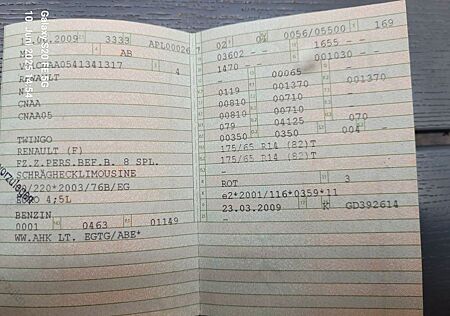 .2009 3333 APL00026
M1 AB
4
RENAULT
N
CNAA
CNAA05
TWINGO
RENAULT (F)
FZ.Z.PERS.BEF.B. 8 SPL.
SCHRÄGHECKLIMOUSINE
/220*2003/76B/EG
EURO 4;5L
BENZIN
0001 0463 01149
WW.AHK LT. EGTG/ABE*
02 0056/05500 169
03602 - - 1655 - -
1470 - - 001030 - -
00065
0119 001370 001370
00810 00710
00810 00710
079 04125 070
00350 0350 004
175/65 R14 (82)T
175/65 R14 (82)T
-
-
ROT 3
e2*2001/116*0359*11
23.03.2009 K GD392614
-